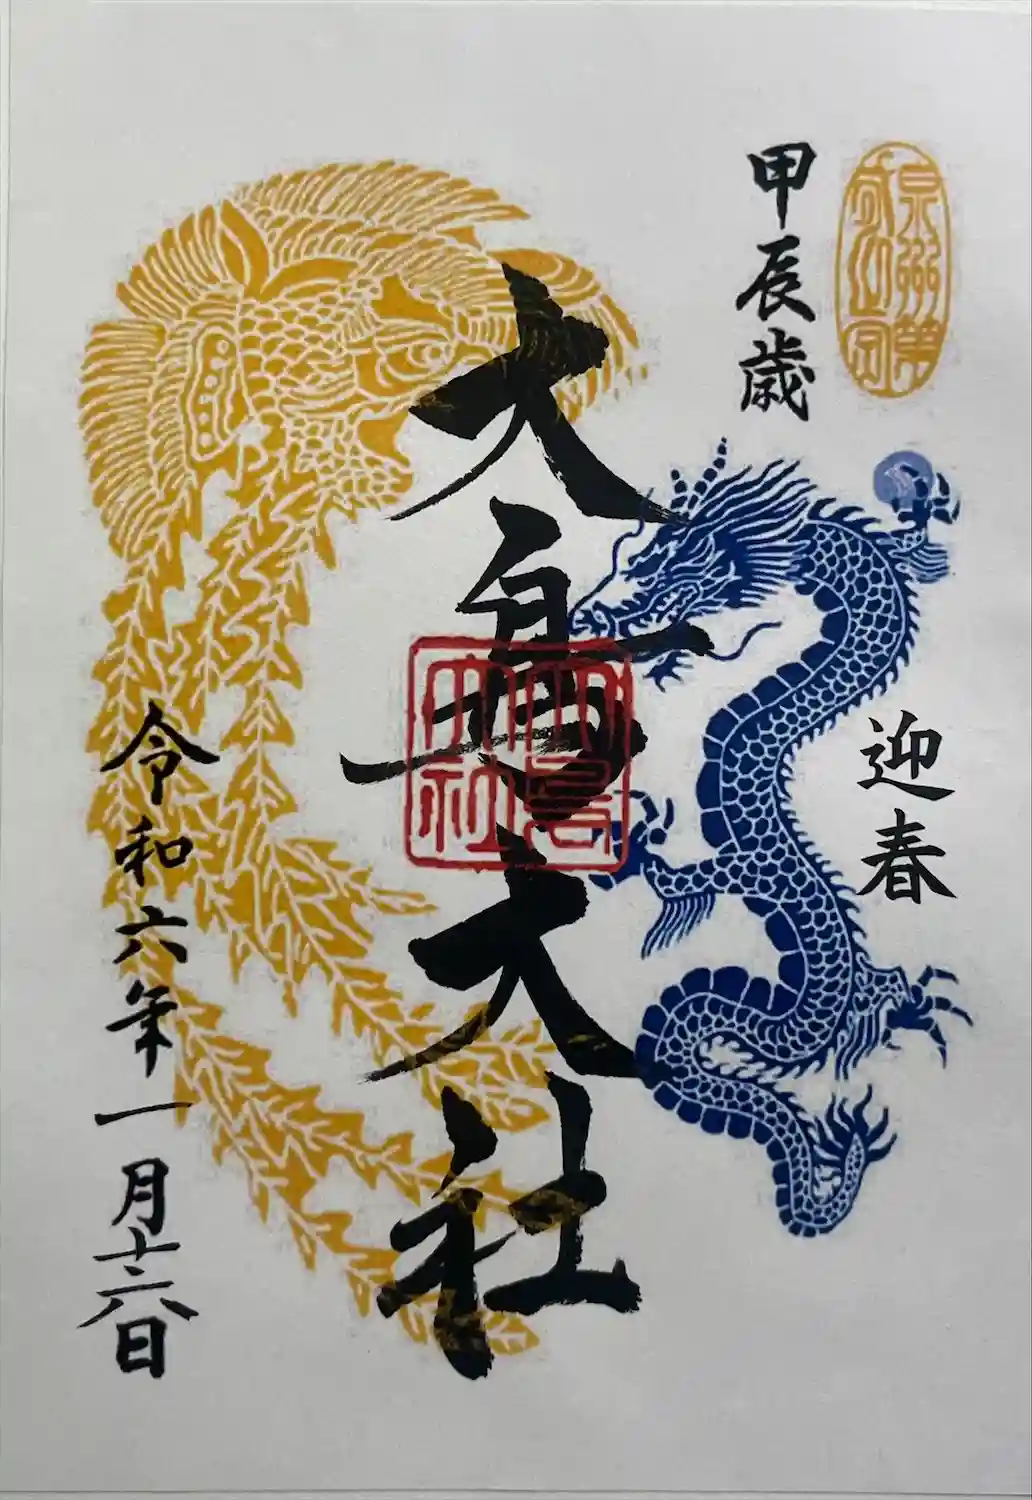 甲辰歳
迎春
大鳥大社
大鳥
大社
令和六年一月十六日